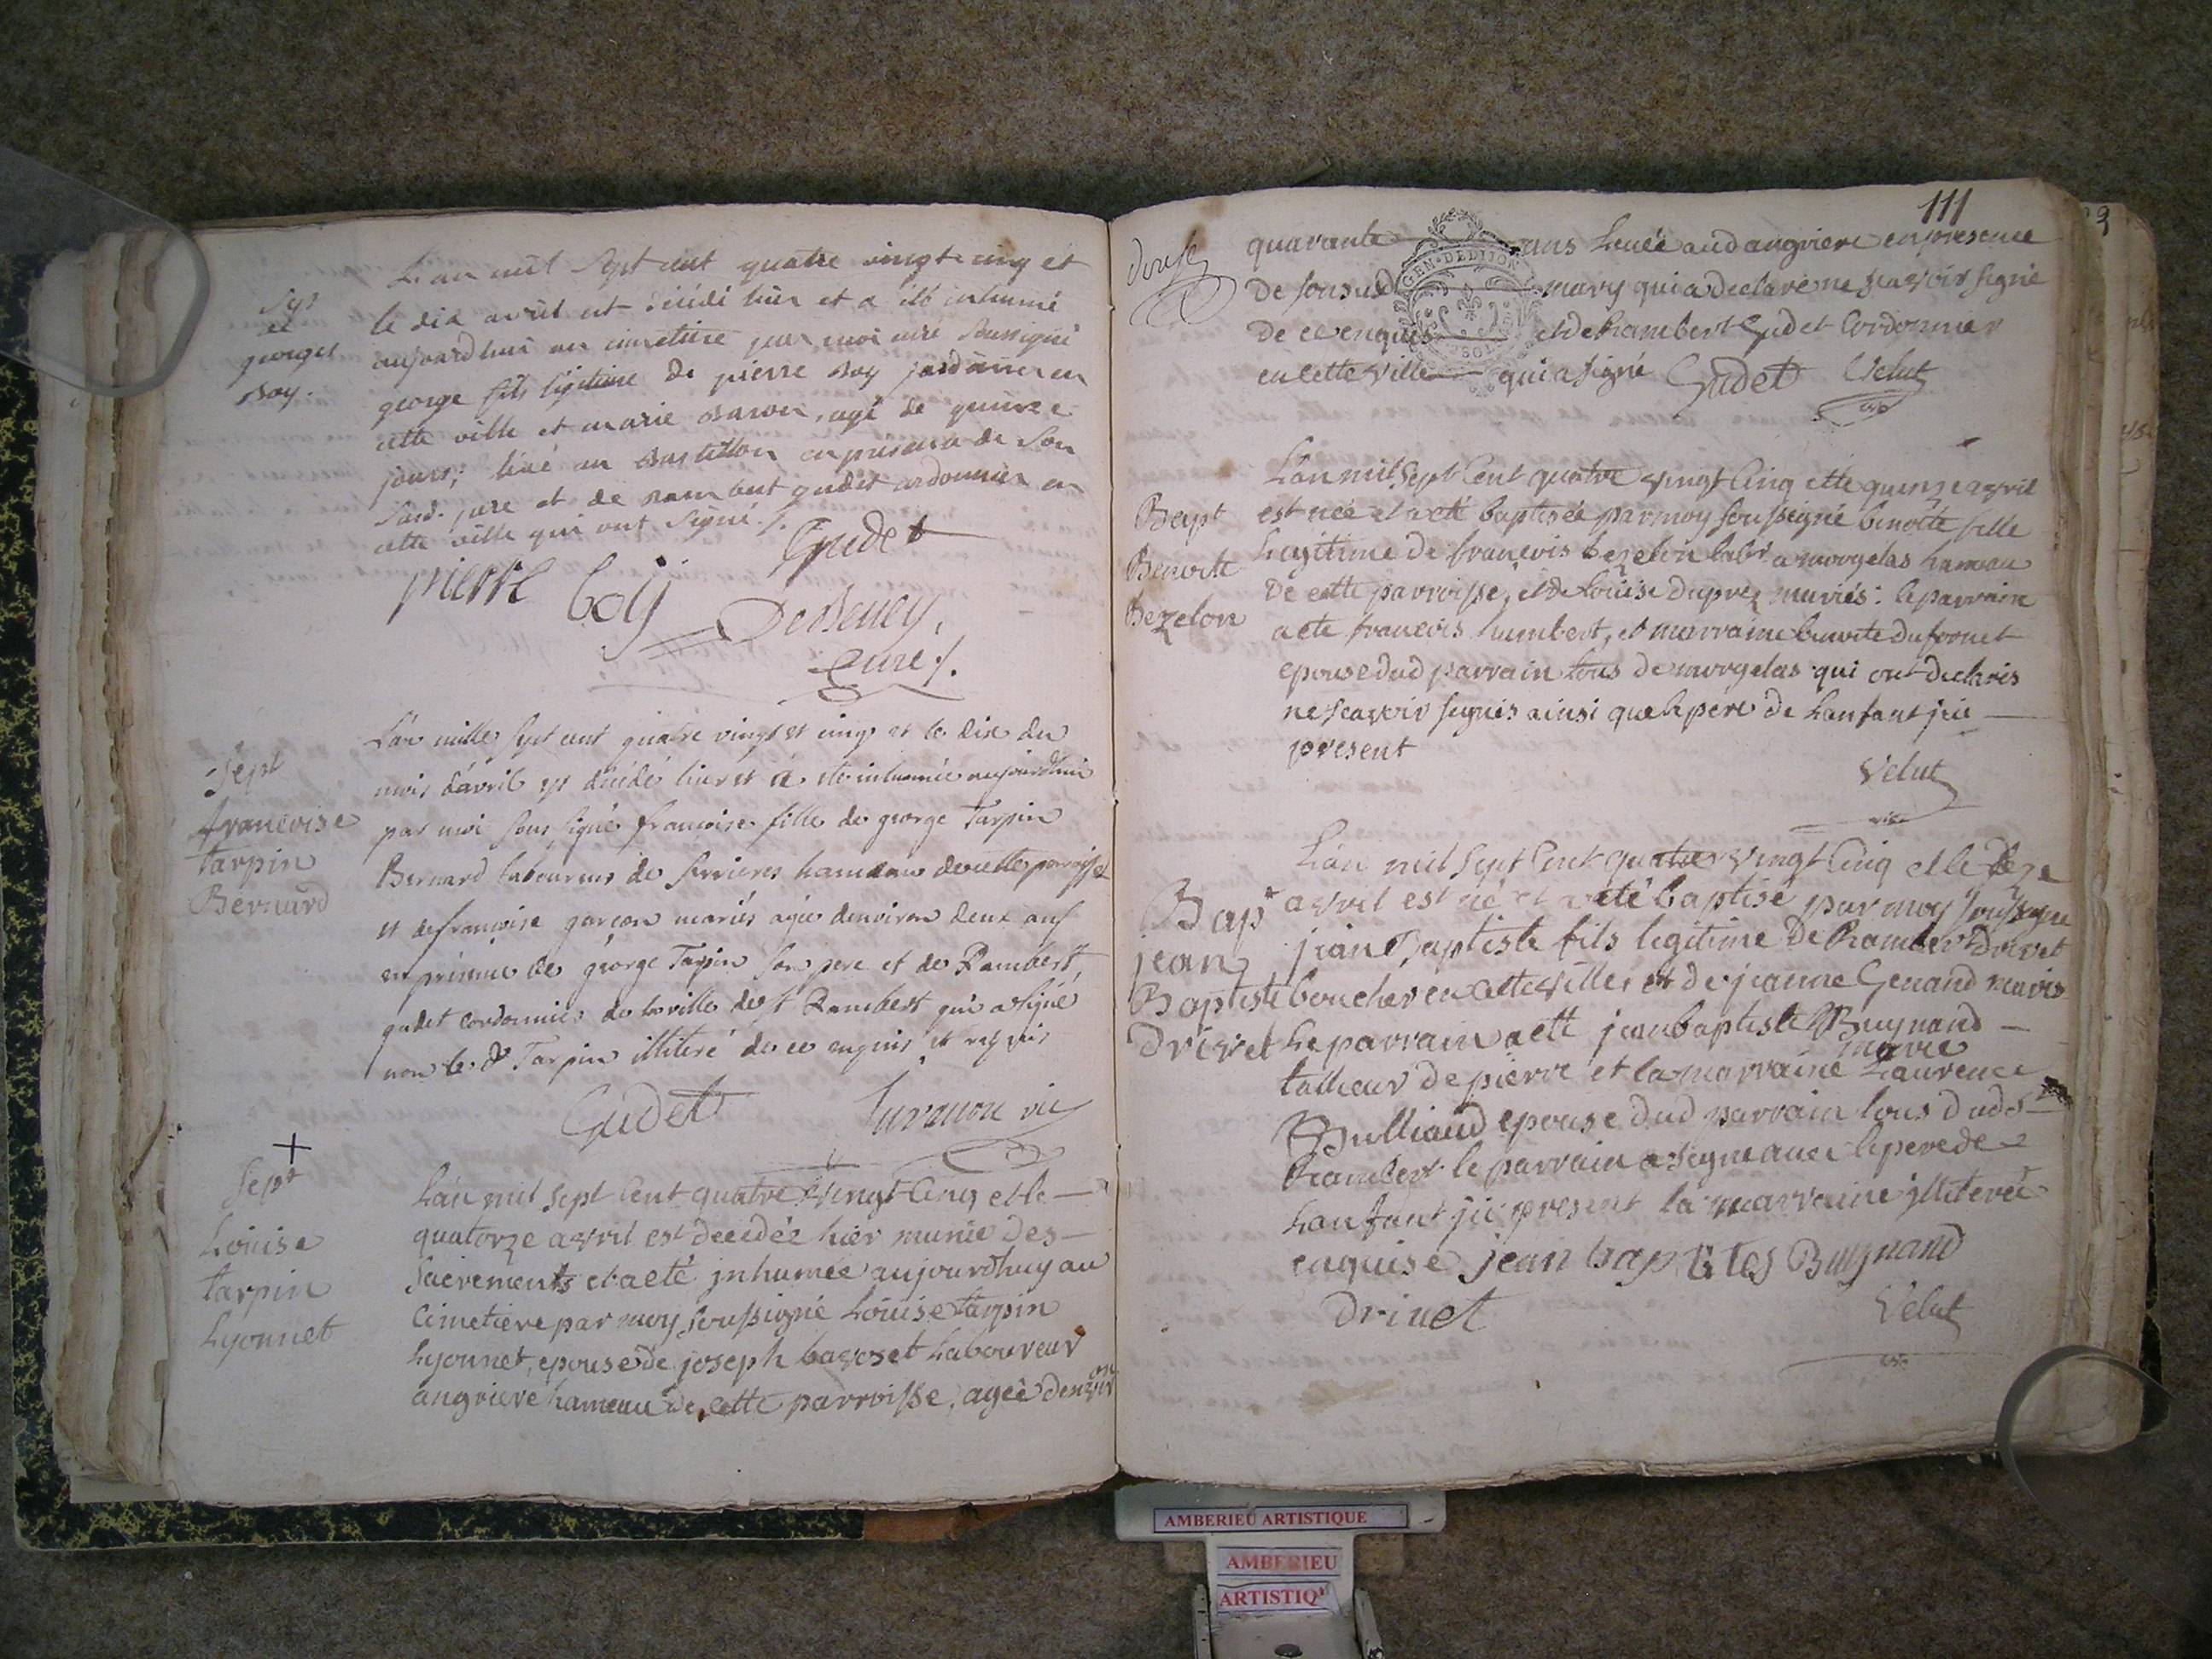 L'an mil sept cent quatre vingt cinq et
le dix avril est décédé hier et a été inhumé
aujourdhui au cimetiere par moi curé soussigné
george fils légitime de pierre Boy jardinier en
cette ville et marie Baron, agé de quinze
jours; livé au Bastillon en présence de son
susd. pere et de rambert gudet cordonnier en
cette ville qui ont signé ./.
Sept
de
george
Boy.
Gudet
pierre boy
DeBeney,
Curé ./.
Sept
francoise
tarpin
Bernard
L'an mille sept cent quatre vingt et cinq et le dix du
mois d'avril est décédé hier et à été inhumée aujourdhui
par moi sous signé francoise fille de george Tarpin
Bernard laboureur de serrieres hameau de cette parroisse
et de francoise garçon mariés agée denviron deux ans
en présence de george Tarpin son pere et de Rambert
gudet cordonnier de la ville de st Rambert qui a signé
non le d. Tarpin illiteré de ce enquis et requis
Gudet
Juvanon vic
+
Sept
Louise
tarpin
Lyonnet
Lan mil sept Cent quatre Vingt Cinq et le
quatorze avril est decedée hier munie des
sacrements et a eté jnhumée aujourdhuy au
Cimetiere par moy soussigné Louise tarpin
Lyonnet, epouse de joseph bavoset Laboureur
angriere hameau de cette parroisse, agée denviron
111
douse
quarante ans Levée aud angriere en presence
de son susd mary qui a declaré ne scavoir signé
de ce enquis et de Rambert Gudet Cordonnier
en cette ville qui a signé Gudet Velut
GEN. DE DIJON
Bapt
Benoite
Bezelon
L'an mil sept Cent quatre vingt Cinq et le quinze avril
est née et a eté baptisée par moy soussigné benoite fille
Legitime de francois bezelon labr a morgelas hameau
De cette parroisse, et de Louise Duprez mariés: le parrain
a ete francois humbert, et marraine benoite dufornet
epouse dud parrain tous de morgelas qui ont declarés
ne scavoir signés ainsi que le pere de Lanfant jci
present
Velut
Bapt
jean
Baptiste
Drivet
L'an mil sept Cent quatre vingt Cinq et le seze
avril est né et a eté baptisé par moy soussigné
jean Baptiste fils legitime De Rambert Drivet
boucher en cette ville et de jeanne Genand mariés
Le parrain a ette jean baptiste Buynand
tallieur de pierre et la marraine marie Laurence
Bulliaud epouse dud parrain tous dud st
Rambert le parrain a signe avec le pere de
Lanfant jci present la marraine jlliterée
enquise jean baptites Buynand
drivet
Velut
AMBERIEU ARTISTIQUE
AMBERIEU
ARTISTIQ